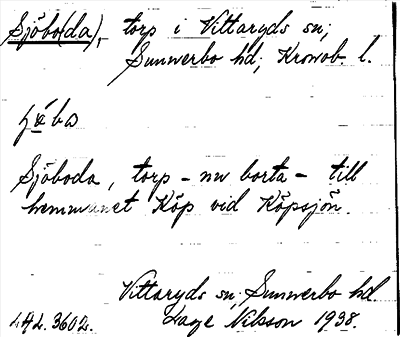 Sjöbo(da), torp i Vittaryds sn;
Sunnerbo hd; Kronob. l.
Sjöboda, torp - nu borta - till
hemmanet Köp vid Köpsjön.
Vittaryds sn, Sunnerbo hd.
LAL. 3602. Lage Nilsson 1938.